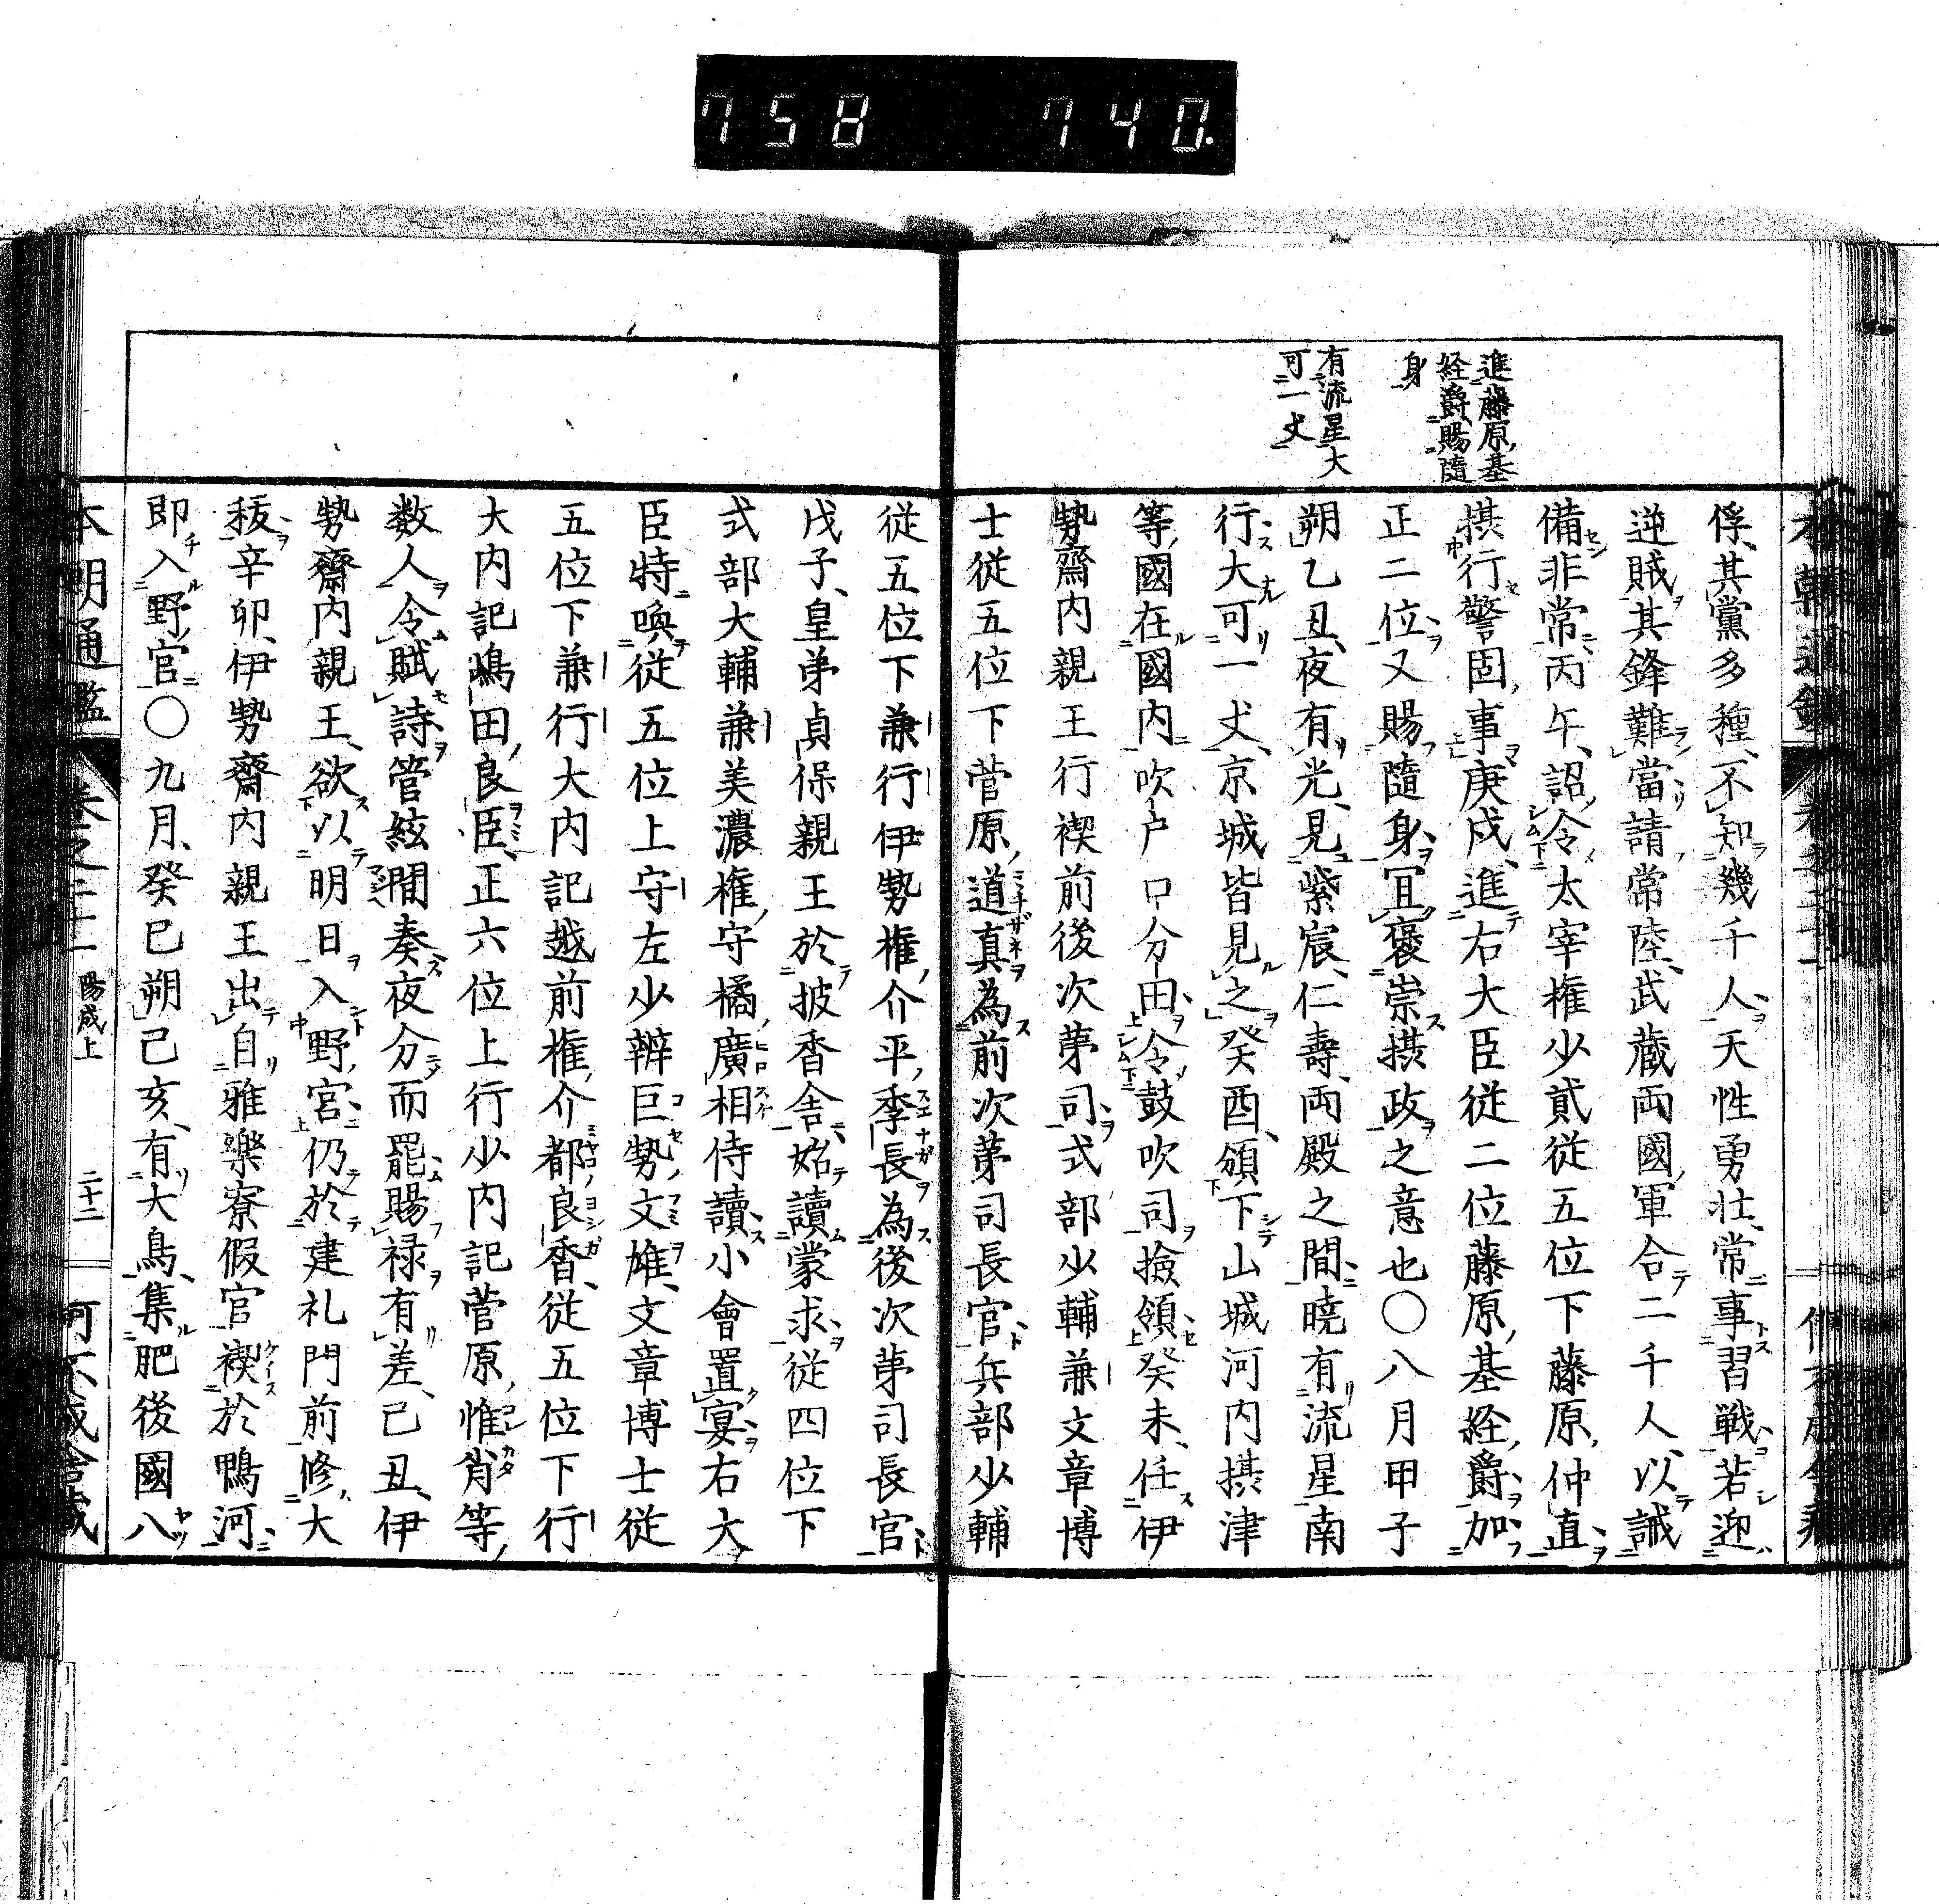 758 740.
進藤原基
経爵賜隨
身
有流星大
可一丈
俘其黨多種不知幾千人天性勇壮常事習戦若迎
逆賊其鋒難當請常陸武蔵両國軍合二千人以誡
備非常丙午詔令太宰権少貳従五位下藤原仲直
摂行警固事庚戌進右大臣従二位藤原基経爵加
正二位又賜隨身冝褒崇摂政之意也〇八月甲子
朔乙丑夜有光見紫宸仁壽両殿之間曉有流星南
行大可一丈京城皆見之癸酉頒下山城河内摂津
等國在國内吹户口分田令鼓吹司撿領癸未任伊
勢齋内親王行禊前後次第司式部少輔兼文章博
士従五位下菅原道真為前次第司長官兵部少輔
従五位下兼行伊勢権介平季長為後次第司長官
戊子皇弟貞保親王於披香舎始讀蒙求従四位下
式部大輔兼美濃権守橘廣相侍讀小會置宴右大
臣特喚従五位上守左少辨巨勢文雄文章博士従
五位下兼行大内記越前権介都良香従五位下行
大内記嶋田良臣正六位上行少内記菅原惟肖等
数人令賦詩管絃間奏夜分而罷賜禄有差己丑伊
勢齋内親王欲以明日入野宮仍於建礼門前修大
秡辛卯伊勢齋内親王出自雅樂寮假官禊於鴨河
即入野宮〇九月癸巳朔己亥有大鳥集肥後國八
本朝通鑑 巻之二十一 陽成上 二十二